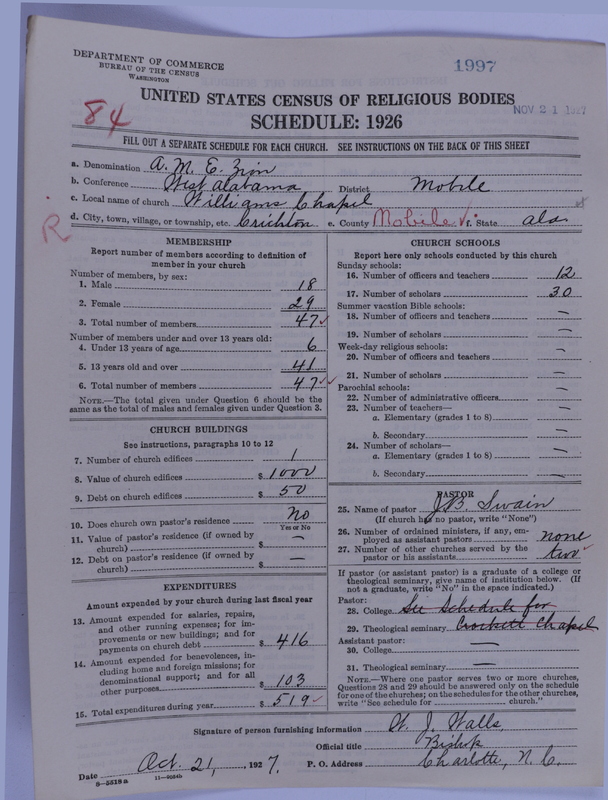 DEPARTMENT OF COMMERCE
BUREAU OF THE CENSUS
WASHINGTON
1997
84
UNITED STATES CENSUS OF RELIGIOUS BODIES
NOV 21 1927
SCHEDULE: 1926
FILL OUT A SEPARATE SCHEDULE FOR EACH CHURCH. SEE INSTRUCTIONS ON THE BACK OF THIS SHEET
a. Denomination A. M. E. Zion
b. Conference West Alabama District Mobile
c. Local name of church Williams Chapel
d. City, town, village, or township, etc. Crichton e. County Mobile f. State Ala
R
MEMBERSHIP
Report number of members according to definition of
member in your church
Number of members, by sex:
1. Male 18
2. Female 29
3. Total number of members 47
Number of members under and over 13 years old:
4. Under 13 years of age 6
5. 13 years old and over 41
6. Total number of members 47
NOTE.—The total given under Question 6 should be
same as the total of males and females given under Question 3.
CHURCH BUILDINGS
See instructions, paragraphs 10 to 12
7. Number of church edifices 1
8. Value of church edifices $ 1000
9. Debt on church edifices $ 50
10. Does church own pastor's residence No
Yes or No
11. Value of pastor's residence (if owned by
church) $ —
12. Debt on pastor's residence (if owned by
church) $ —
EXPENDITURES
Amount expended by your church during last fiscal year
13. Amount expended for salaries, repairs,
and other running expenses; for im-
provements or new buildings; and for
payments on church debt $ 416
14. Amount expended for benevolences, in-
cluding home and foreign missions; for
denominational support; and for all
other purposes $ 103
15. Total expenditures during year $ 519
CHURCH SCHOOLS
Report here only schools conducted by this church
Sunday schools:
16. Number of officers and teachers 12
17. Number of scholars 30
Summer vacation Bible schools:
18. Number of officers and teachers —
19. Number of scholars —
Week-day religious schools:
20. Number of officers and teachers —
21. Number of scholars —
Parochial schools:
22. Number of administrative officers —
23. Number of teachers—
a. Elementary (grades 1 to 8) —
b. Secondary —
24. Number of scholars—
a. Elementary (grades 1 to 8) —
b. Secondary —
PASTOR
25. Name of pastor J. B. Swain
(If church has no pastor, write "None")
26. Number of ordained ministers, if any, em-
ployed as assistant pastors none
27. Number of other churches served by the
pastor or his assistants two
If pastor (or assistant pastor) is a graduate of a college or
theological seminary, give name of institution below. (If
not a graduate, write "No" in the space indicated.)
Pastor:
28. College See Schedule for
29. Theological seminary Crockett Chapel
Assistant pastor:
30. College —
31. Theological seminary —
NOTE.—Where one pastor serves two or more churches,
Questions 28 and 29 should be answered only on the schedule
for one of the churches; on the schedules for the other churches,
write "See schedule for church."
Signature of person furnishing information W. J. Walls,
Official title Bishop
Date Oct. 21, 1927. P. O. Address Charlotte, N. C.
8-5518a 11-9064b